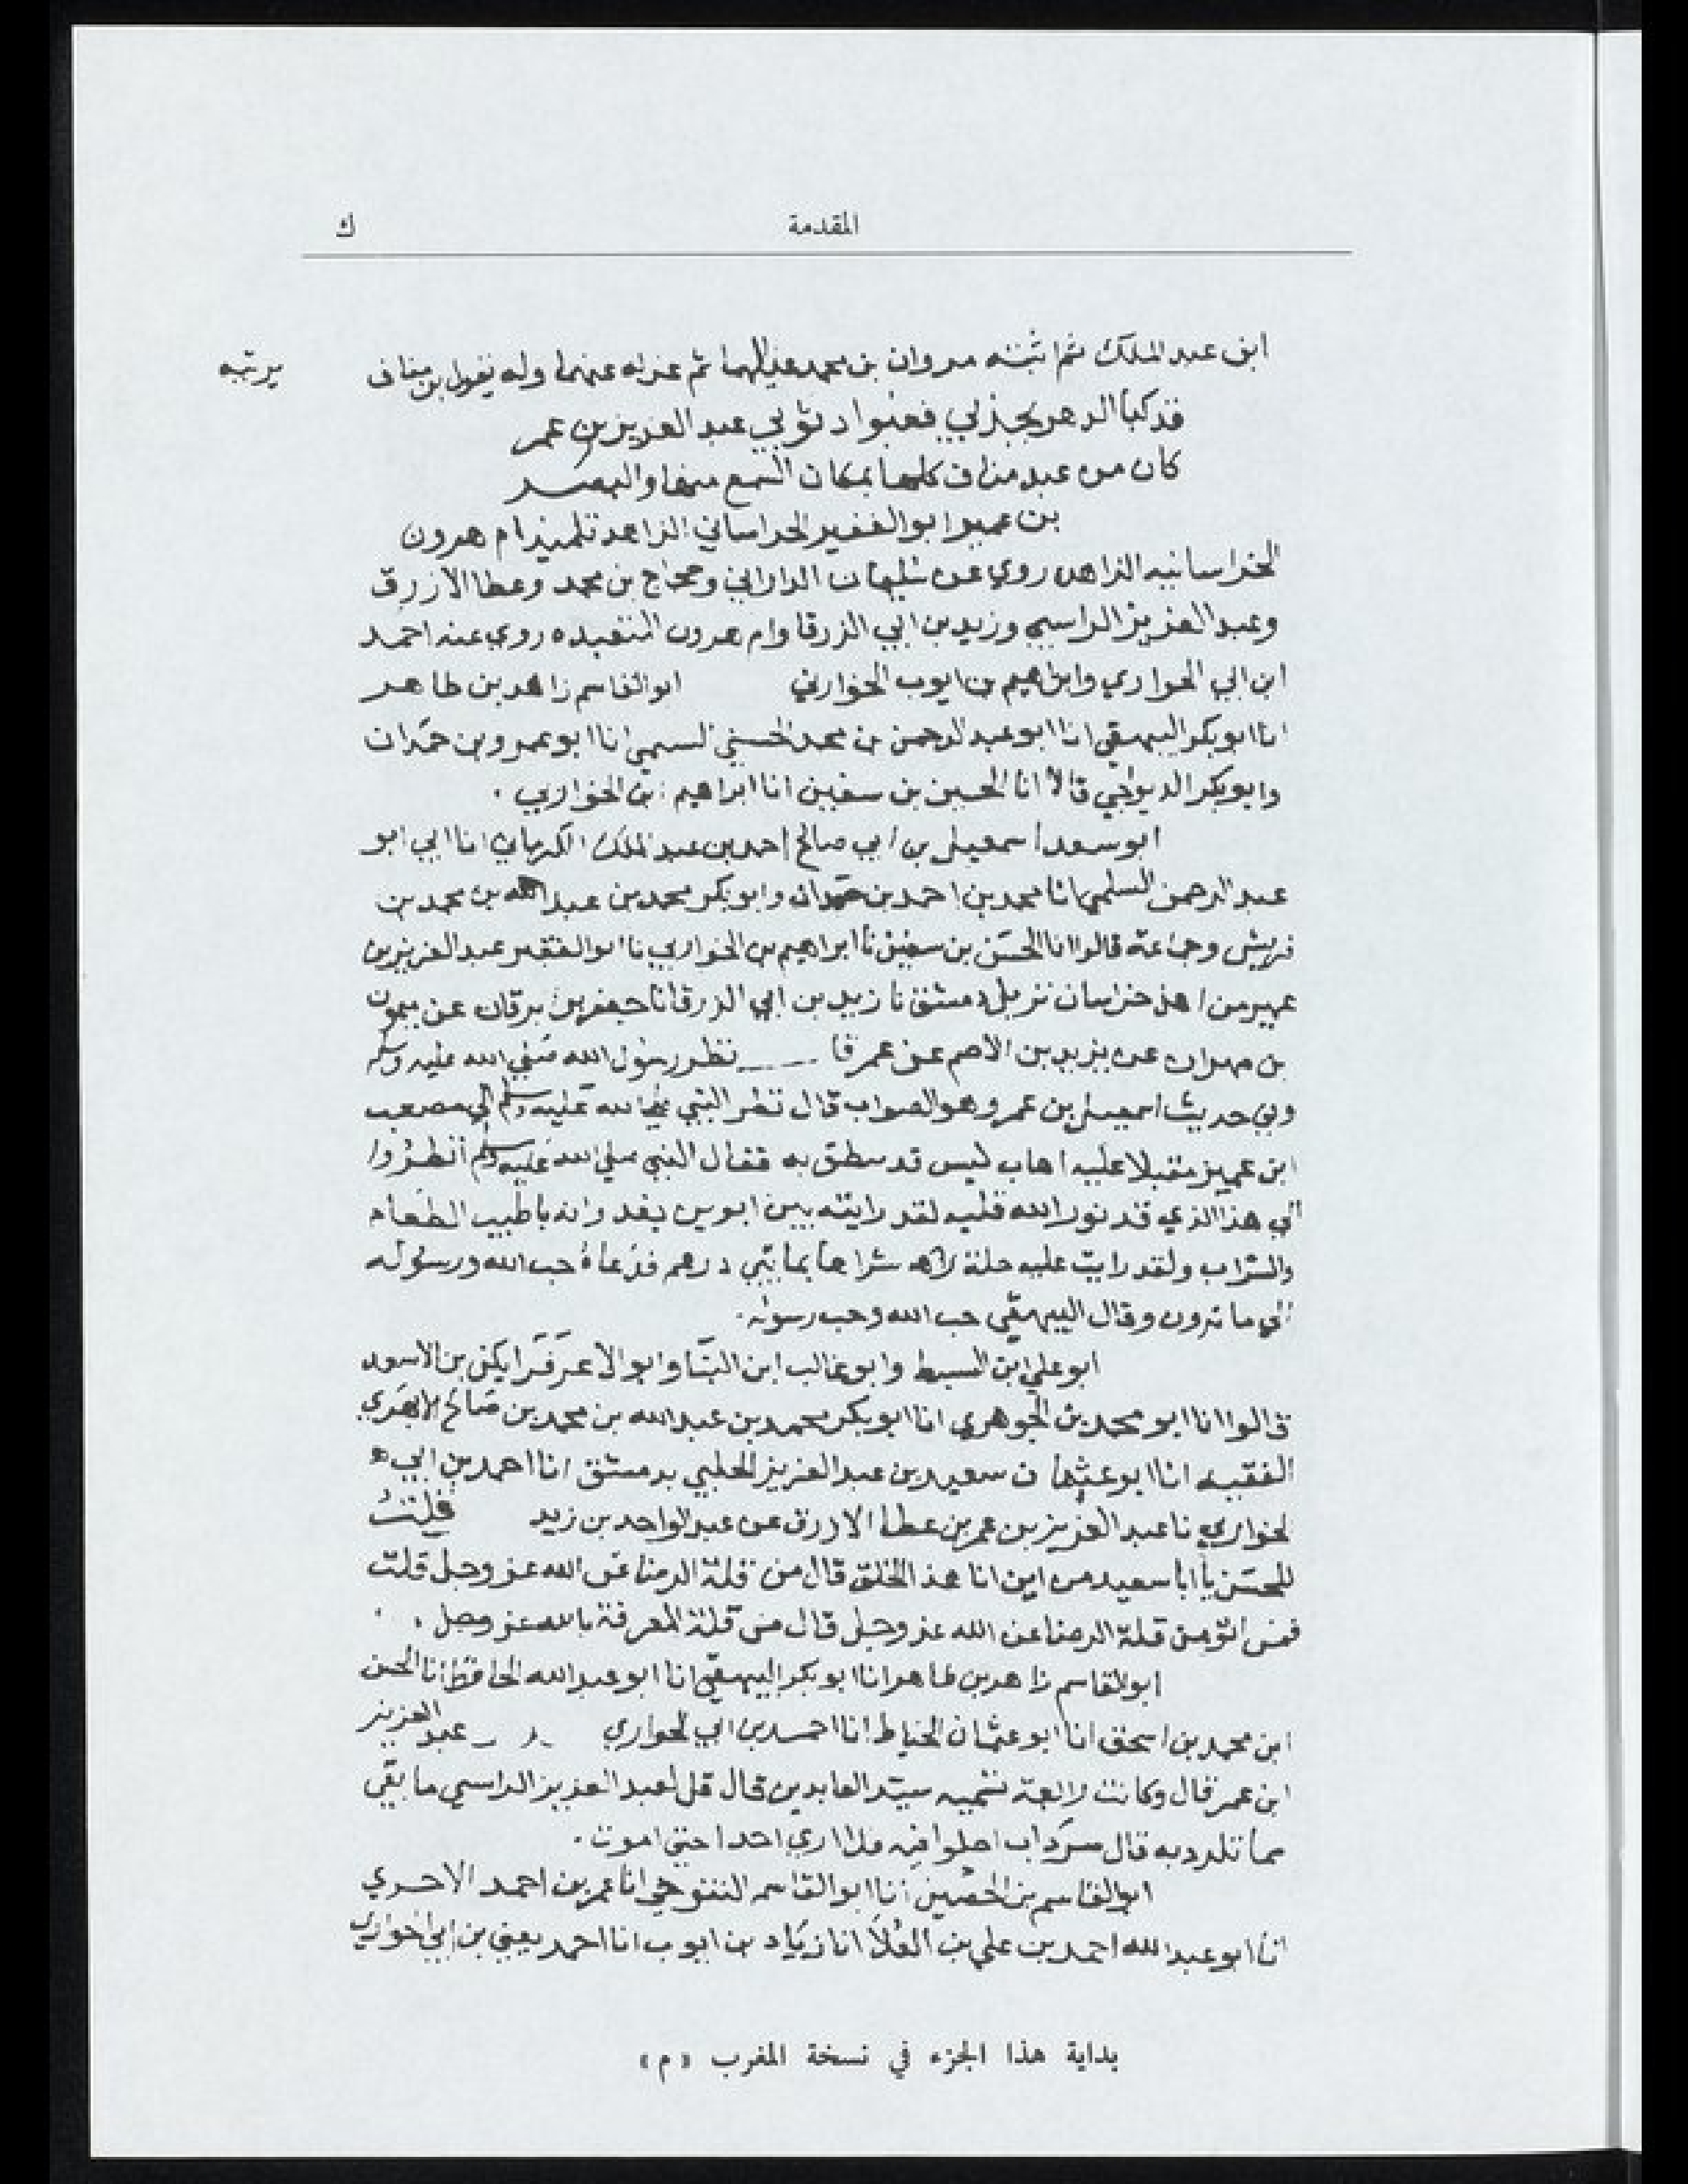 المقدمة
ك
ابن عبد الملك ثم اثبته مروان بن محمد عليهما ثم عزله عنهما وله يقول ابن
يرثيه
قد كبا الدهر بجدي فعثر اد ثوي عبد العزيز بن عمر
كان من عبد مناف كلها بمكان السمع منها والبصر
بن عمير ابو الفقير الخراساني الزاهد تلميذ ام هرون
الخراسانيه الزاهده روي عن سليمان الداراني وحجاج بن محمد وعطا الازرق
وعبد العزيز الراسبي وزيد بن ابي الزرقا وام هرون المتعبده روي عنه احمد
ابن ابي الحواري وابراهيم بن ايوب الحوراني ابو القاسم زاهر بن طاهر
انا ابو بكر البيهقي انا ابو عبد الرحمن بن محمد السلمي انا ابو عمرو بن حمدان
وابو بكر الديونجي قالا انا الحسين بن سفين انا ابراهيم بن الحوراني .
ابو سعد اسمعيل بن ابي صالح احمد بن عبد الملك الكرماني انا ابي ابو
عبد الرحمن السلمي انا محمد بن احمد بن حمدان وابو بكر محمد بن عبد الله بن محمد بن
قريش وجماعة قالوا انا الحسن بن سفين نا ابراهيم بن الحوراني نا ابو الفقير عبد العزيز بن
عمير من اهل خراسان نزيل دمشق نا زيد بن ابي الزرقا نا جعفر بن برقان عن ميمون
بن مهران عن يزيد بن الاصم عن عمر قا ـــ نظر رسول الله صلي الله عليه وسلم
وفي حديث اسمعيل بن عمر وهو الصواب قال نظر النبي صلي الله عليه وسلم الي مصعب
ابن عمير مقبلا عليه اهاب كبس قد سطق به فقال النبي صلي الله عليه وسلم انظروا
الي هذا الذي قد نور الله قلبه لقد رايته بين ابوين يغدوانه باطيب الطعام
والشراب ولقد رايت عليه حلة شراها بمايتي درهم فدعاه حب الله ورسوله
الي ما ترون وقال البيهقي حب الله وحب رسوله.
ابو علي ابن السبط وابو غالب ابن البنا وابو الاعز قراتكين بن الاسعد
قالوا انا ابو محمد بن الجوهري انا ابو بكر محمد بن عبد الله بن محمد بن صالح الابهري
الفقيه انا ابو عثمان سعيد بن عبد العزيز الحلبي بدمشق انا احمد بن ابي
الحواري نا عبد العزيز بن عمر بن عطا الازرق عن عبد الواحد بن زيد قلت
للحسن يا ابا سعيد من اين اتا هذ الخلق قال من قلة الرضا عن الله عز وجل قلت
فمن اتو من قلة الرضا عن الله عز وجل قال من قلة المعرفة بالله عز وجل .
ابو القاسم زاهر بن طاهر انا ابو بكر البيهقي انا ابو عبد الله الحافظ انا الحسن
ابن محمد بن اسحق انا ابو عثمان الخياط انا احمد بن ابي الحواري عبد العزيز
ابن عمر قال وكانت رابعة تسميه سيد العابدين قال قيل لعبد العزيز الراسبي ما بقي
مما تلدد به قال سرداب اخلوا فيه فلا اري احدا حتي اموت .
ابو القاسم بن الحصين انا ابو القاسم التنوخي انا عمر بن احمد الاجري
انا ابو عبد الله احمد بن علي بن العلا انا زياد بن ايوب انا احمد يعني بن ابي الحواري
بداية هذا الجزء في نسخة المغرب « م »